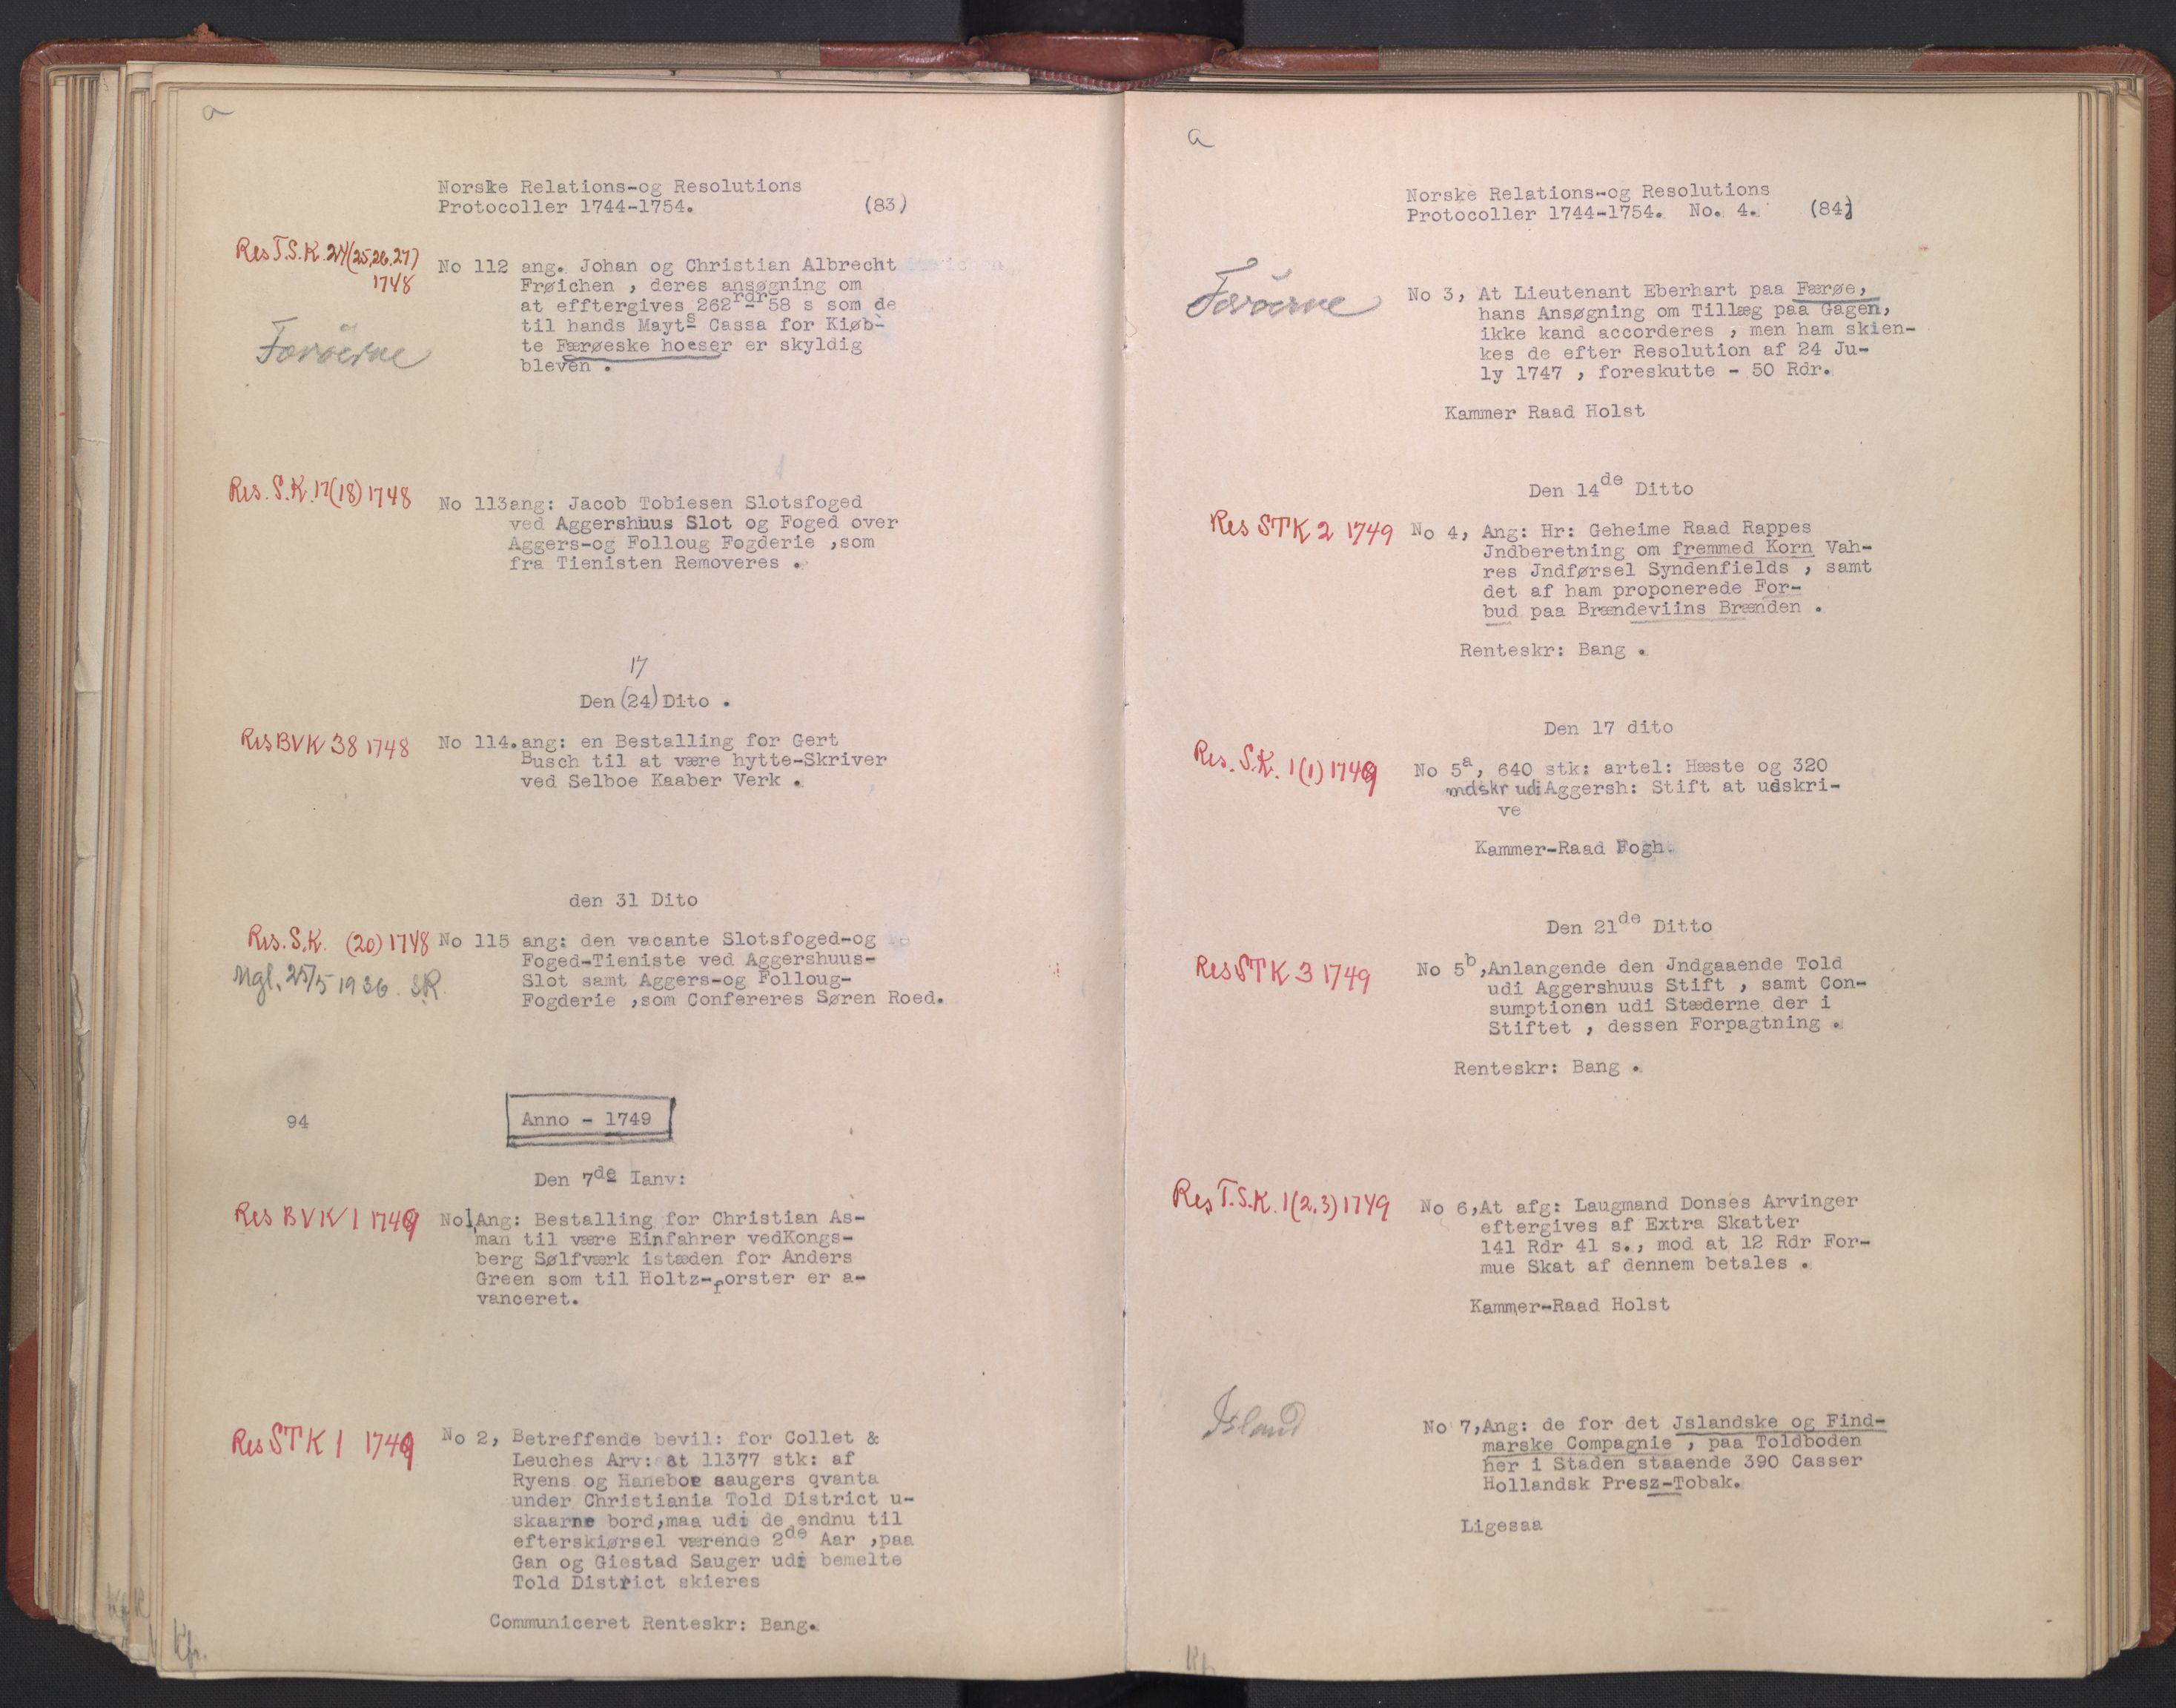 a
Norske Relations-og Resolutions
Protocoller 1744-1754. (83)
Res T.S.K. 24(25,26,27)
1748
No 112 ang. Johan og Christian Albrecht
Frøichen , deres ansøgning om
at efftergives 262 rdr 58 s som de
til hands Mayts Cassa for Kiøb-
te Færøeske hoeser er skyldig
bleven .
Færöerne
Res. S.K. 17(18) 1748
No 113ang: Jacob Tobiesen Slotsfoged
ved Aggershuus Slot og Foged over
Aggers-og Folloug Fogderie ,som
fra Tienisten Removeres .
17
Den (24) Dito .
Res BVK 38 1748
No 114.ang: en Bestalling for Gert
Busch til at være hytte-Skriver
ved Selboe Kaaber Verk .
den 31 Dito
Res. S.K. (20) 1748
No 115 ang: den vacante Slotsfoged-og
Foged-Tieniste ved Aggershuus-
Slot samt Aggers-og Folloug-
Fogderie ,som Confereres Søren Roed.
Mgl. 25/5 1936. SR.
94
Anno - 1749
Den 7de Ianv:
Res BVK 1 1749
No1,Ang: Bestalling for Christian As-
man til være Einfahrer vedKongs-
berg Sølfværk istæden for Anders
Green som til Holtz-forster er a-
vanceret.
Res STK 1 1749
No 2, Betreffende bevil: for Collet &
Leuches Arv: at 11377 stk: af
Ryens og Haneboe saugers qvanta
under Christiania Told District u-
skaarne bord,maa udi de endnu til
efterskiørsel værende 2de Aar ,paa
Gan og Giestad Sauger udi bemelte
Told District skieres
Communiceret Renteskr: Bang.
Kp.
a
Norske Relations-og Resolutions
Protocoller 1744-1754. No. 4. (84)
Færöerne
No 3, At Lieutenant Eberhart paa Færøe,
hans Ansøgning om Tillæg paa Gagen,
ikke kand accorderes , men ham skien-
kes de efter Resolution af 24 Ju-
ly 1747 , foreskutte - 50 Rdr.
Kammer Raad Holst
Den 14de Ditto
Res STK 2 1749
No 4, Ang: Hr: Geheime Raad Rappes
Jndberetning om fremmed Korn Vah-
res Jndførsel Syndenfields , samt
det af ham proponerede For-
bud paa Brændeviins Brænden .
Renteskr: Bang .
Den 17 dito
Res. S.K. 1(1) 1749
No 5a, 640 stk: artel: Hæste og 320
mdskr udi Aggersh: Stift at udskri-
ve
Kammer-Raad Fogh.
Den 21de Ditto
Res STK 3 1749
No 5b,Anlangende den Jndgaaende Told
udi Aggershuus Stift , samt Con-
sumptionen udi Stæderne der i
Stiftet , dessen Forpagtning .
Renteskr: Bang .
Res T.S.K. 1(2,3) 1749
No 6,At afg: Laugmand Donses Arvinger
eftergives af Extra Skatter
141 Rdr 41 s., mod at 12 Rdr For-
mue Skat af dennem betales .
Kammer-Raad Holst
Island
No 7,Ang: de for det Jslandske og Find-
marske Compagnie , paa Toldboden
her i Staden staaende 390 Casser
Hollandsk Presz-Tobak.
Ligesaa
Kp